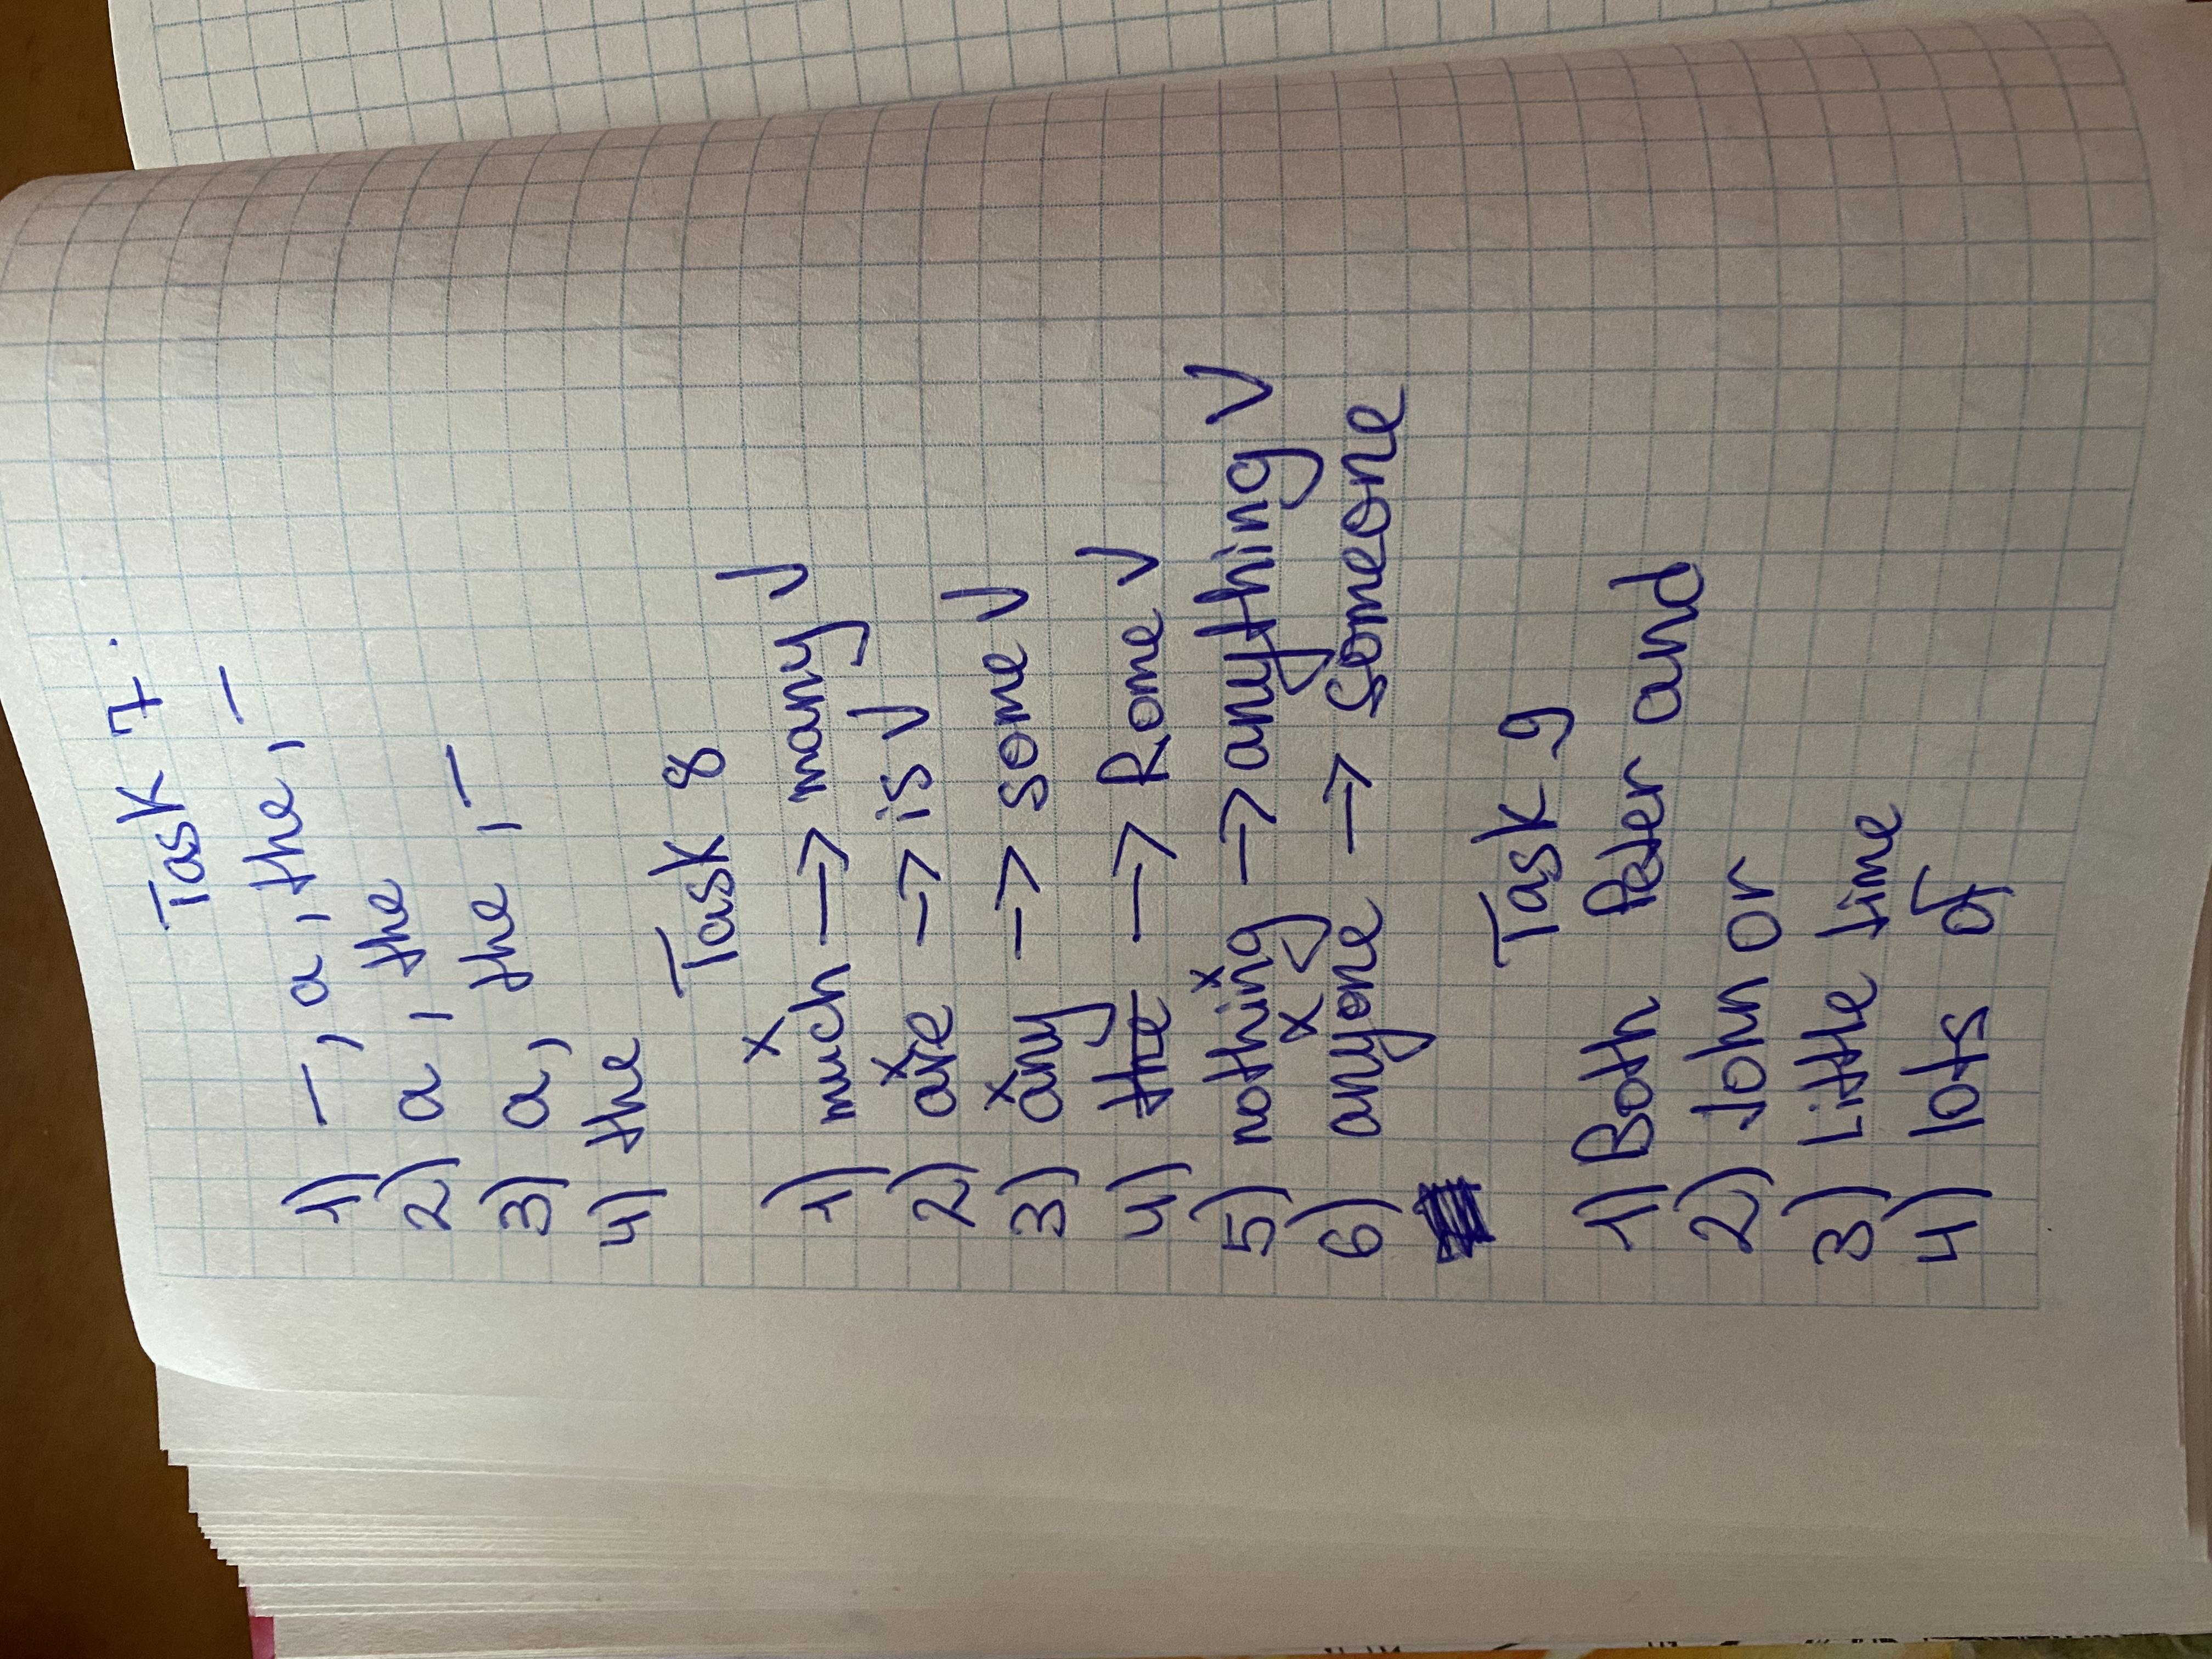 Task 7.
1) –, a, the, –
2) a, the
3) a, the, –
4) the
Task 8
1) much → many V
2) are → is V
3) any → some V
4) the → Rome V
5) nothing → anything V
6) anyone → someone
Task 9
1) Both Peter and
2) John or
3) Little time
4) lots of